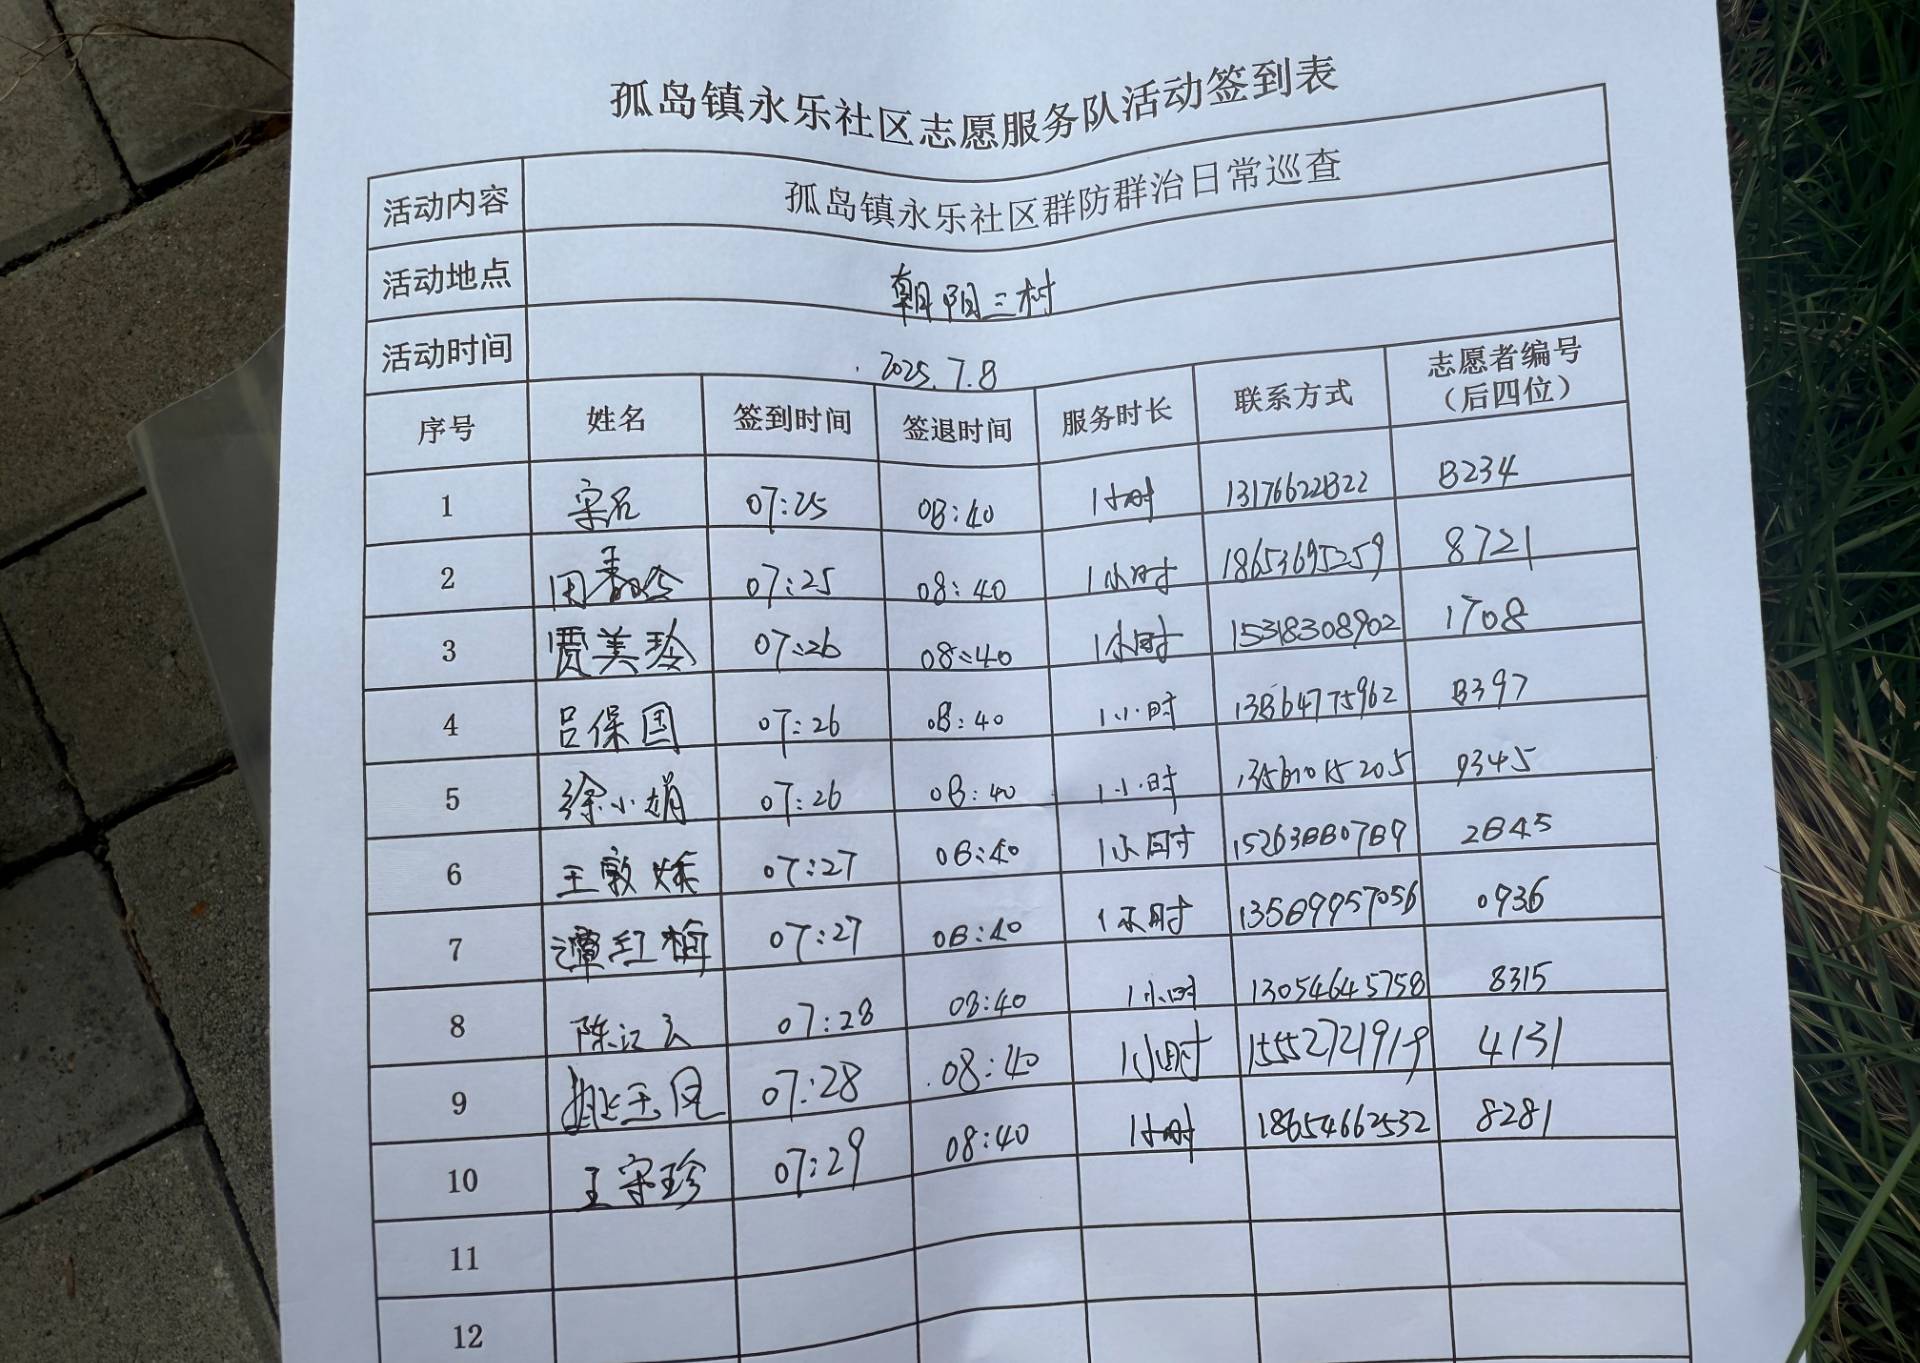 孤岛镇永乐社区志愿服务队活动签到表
活动内容 孤岛镇永乐社区群防群治日常巡查
活动地点 朝阳三村
活动时间 2025.7.8
序号 姓名 签到时间 签退时间 服务时长 联系方式 志愿者编号（后四位）
1 07:25 08:40 1小时 13176622822 8234
2 07:25 08:40 1小时 18653695259 8721
3 贾美玲 07:26 08:40 1小时 15318308902 1708
4 吕保国 07:26 08:40 1小时 13864775962 8397
5 徐小娟 07:26 08:40 1小时 13561015205 9345
6 王敦 07:27 08:40 1小时 15263880789 2845
7 谭红梅 07:27 08:40 1小时 13589957056 0936
8 陈江云 07:28 08:40 1小时 13054645758 8315
9 姚玉凤 07:28 08:40 1小时 15552721919 4131
10 王守珍 07:29 08:40 1小时 18654662532 8281
11
12